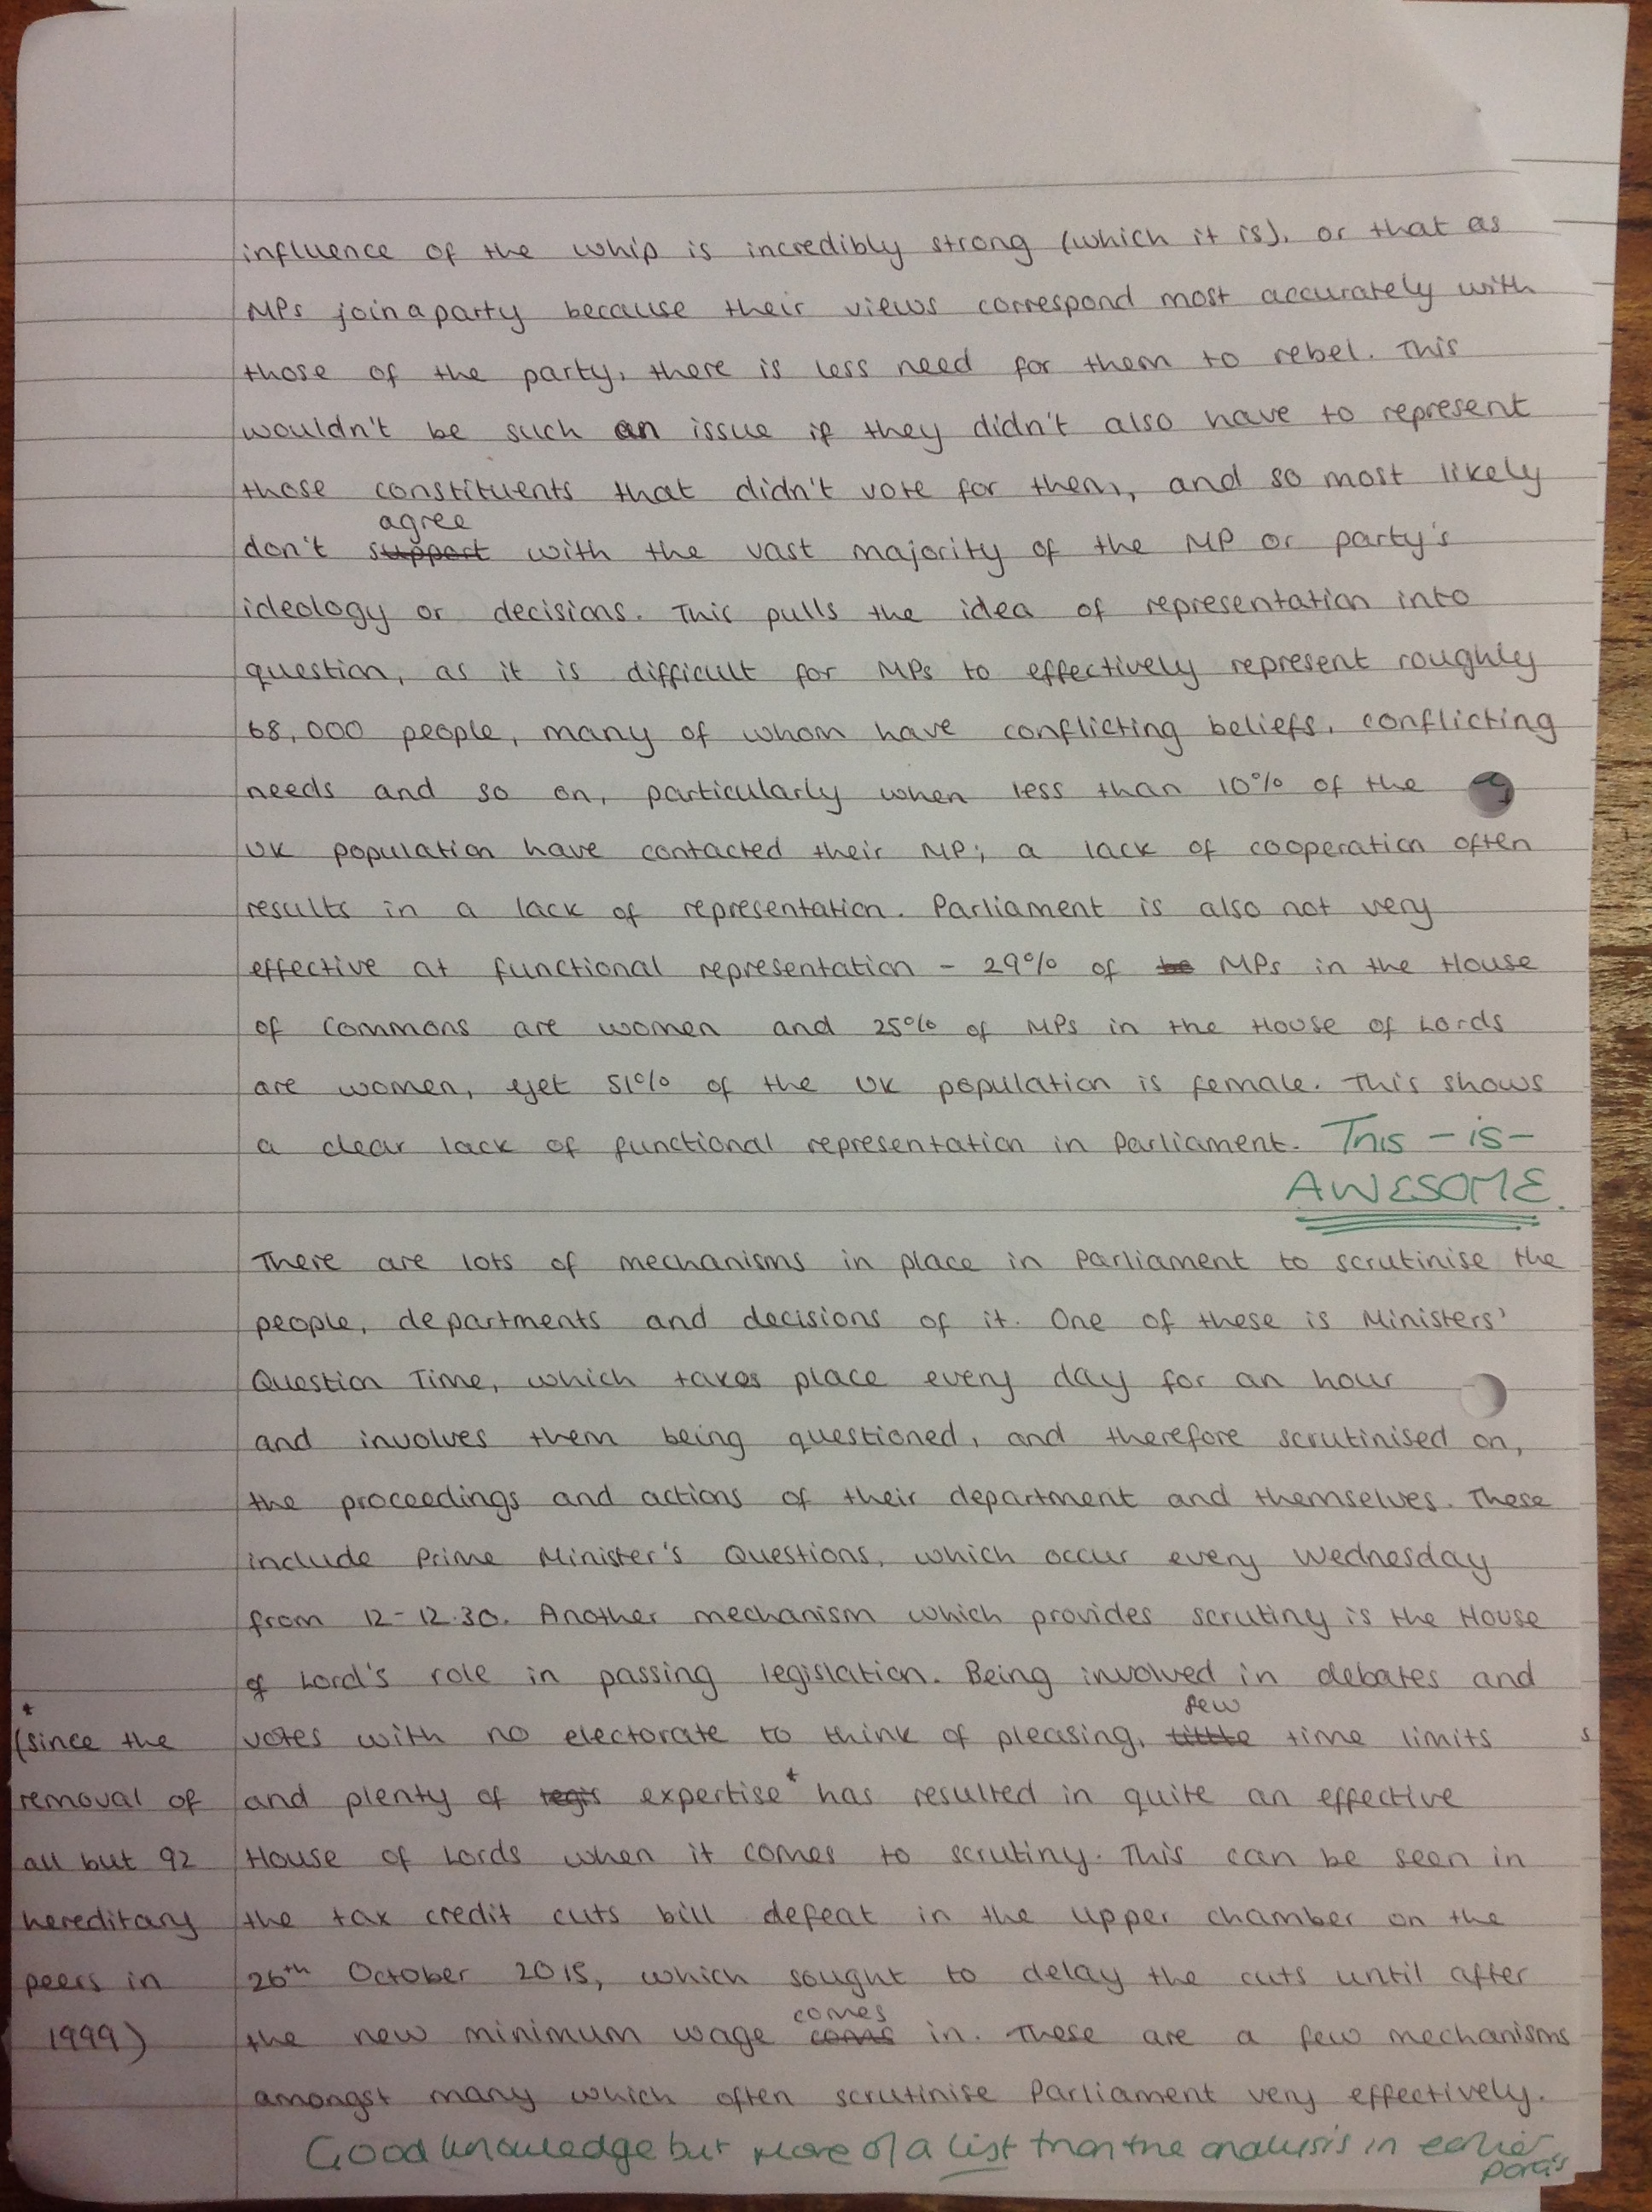 influence of the whip is incredibly strong (which it is), or that as
MPs join a party because their views correspond most accurately with
those of the party, there is less need for them to rebel. This
wouldn't be such an issue if they didn't also have to represent
those constituents that didn't vote for them, and so most likely
agree
don't support with the vast majority of the MP or party's
ideology or decisions. This pulls the idea of representation into
question, as it is difficult for MPs to effectively represent roughly
68,000 people, many of whom have conflicting beliefs, conflicting
needs and so on, particularly when less than 10% of the
UK population have contacted their MP; a lack of cooperation often
results in a lack of representation. Parliament is also not very
effective at functional representation - 29% of be MPs in the House
of Commons are women and 25% of MPs in the House of Lords
are women, yet 51% of the UK population is female. This shows
a clear lack of functional representation in Parliament. This - is -
AWESOME.
There are lots of mechanisms in place in Parliament to scrutinise the
people, departments and decisions of it. One of these is Ministers'
Question Time, which takes place every day for an hour
and involves them being questioned, and therefore scrutinised on,
the proceedings and actions of their department and themselves. These
include Prime Minister's Questions, which occur every Wednesday
from 12-12.30. Another mechanism which provides scrutiny is the House
of Lord's role in passing legislation. Being involved in debates and
few
votes with no electorate to think of pleasing, little time limits
and plenty of legis expertise* has resulted in quite an effective
House of Lords when it comes to scrutiny. This can be seen in
the tax credit cuts bill defeat in the upper chamber on the
26th October 2015, which sought to delay the cuts until after
comes
the new minimum wage in. These are a few mechanisms
amongst many which often scrutinise Parliament very effectively.
*
(since the
removal of
all but 92
hereditary
peers in
1999)
Good knowledge but more of a list than the analysis in earlier
para's